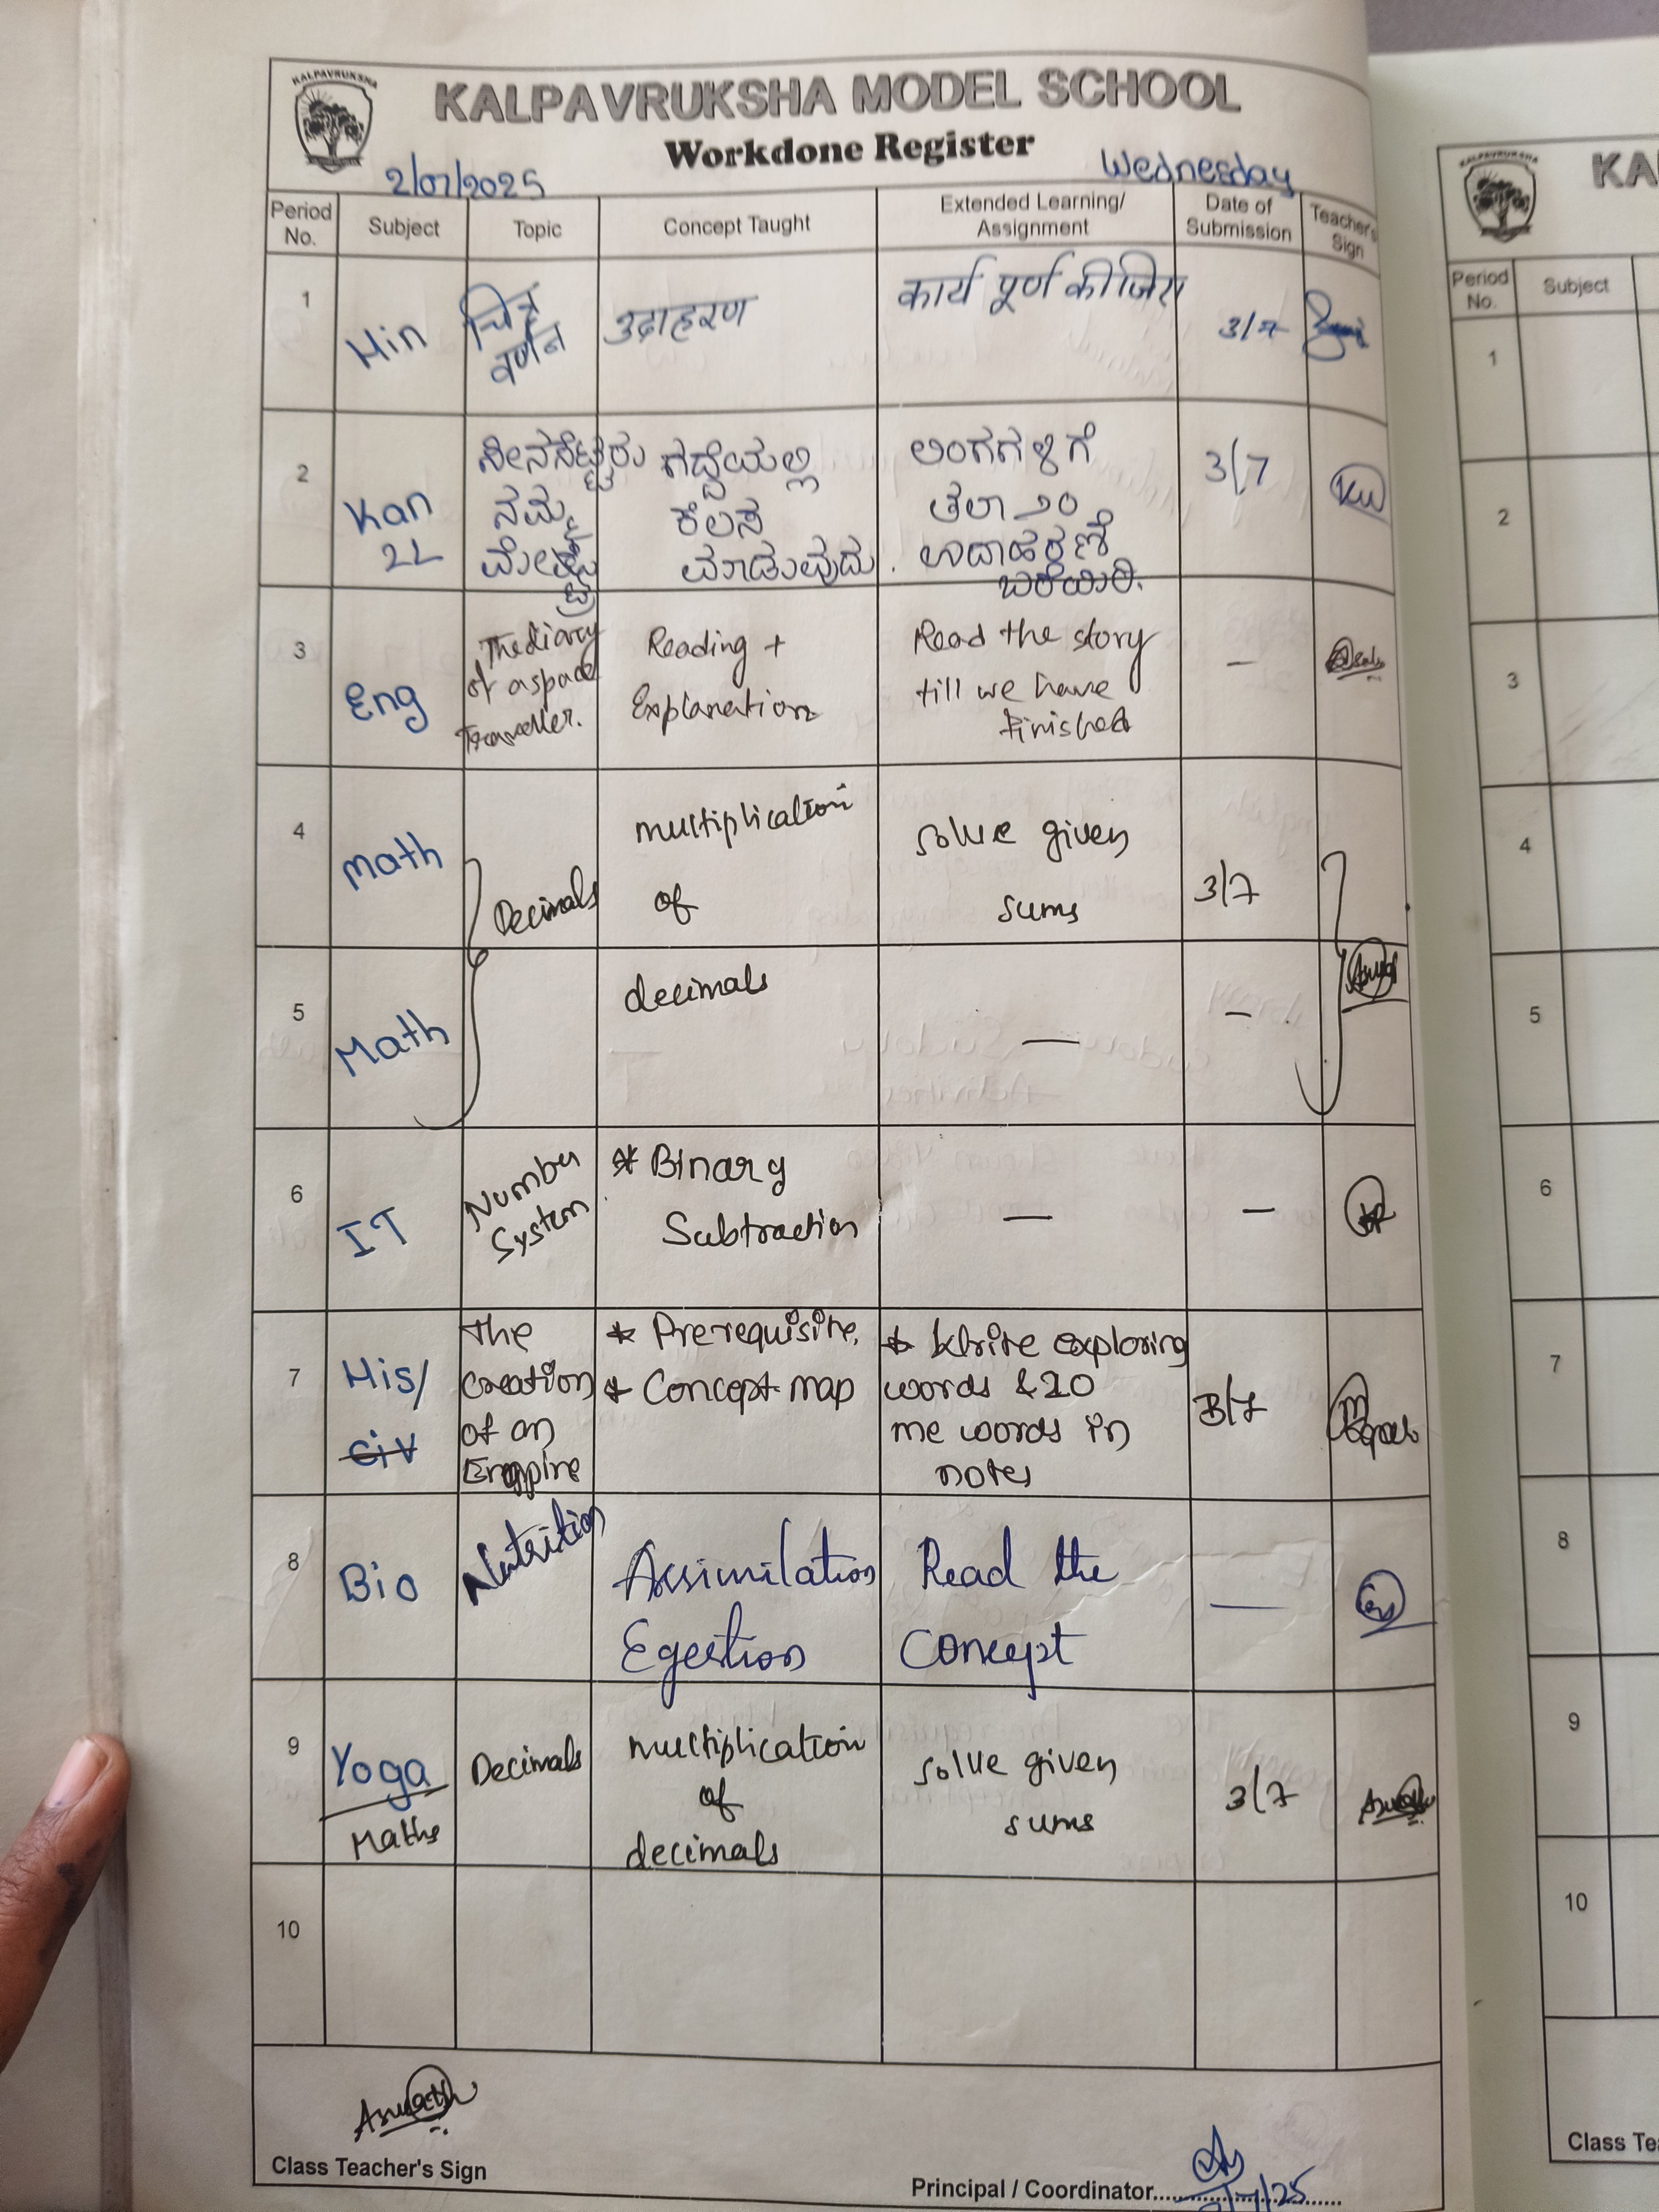 KALPAVRUKSHA
KALPAVRUKSHA MODEL SCHOOL
Workdone Register
2/07/2025 Wednesday
Period No. Subject Topic Concept Taught Extended Learning/ Assignment Date of Submission Teacher's Sign
1 Hin चित्र वर्णन उदाहरण कार्य पूर्ण कीजिए 3/7
2 Kan 2L
ಸೀನಸೆಟ್ಟರು ನಮ್ಮ
ಗದ್ದೆಯಲ್ಲಿ ಕೆಲಸ ಮಾಡುವುದು.
ಲಿಂಗಗಳಿಗೆ ತಲಾ ೨೦ ಉದಾಹರಣೆ ಬರೆಯಿರಿ.
3/7
3 Eng
The diary of a space Traveller.
Reading + Explanation
Read the story till we have finished
—
4 Math Decimals multiplication of solve given sums 3/7
5 Math decimals — —
6 IT Number System * Binary Subtraction — —
7 His/ Civ
The creation of an Empire
* Prerequisite,
* Concept map
* Write exploring words & 20 me words in notes
3/7
8 Bio Nutrition Assimilation Egestion Read the Concept —
9 Yoga Maths Decimals multiplication of decimals solve given sums 3/7
10
Class Teacher's Sign
Principal / Coordinator
KA
Period No. Subject
1
2
3
4
5
6
7
8
9
10
Class Te